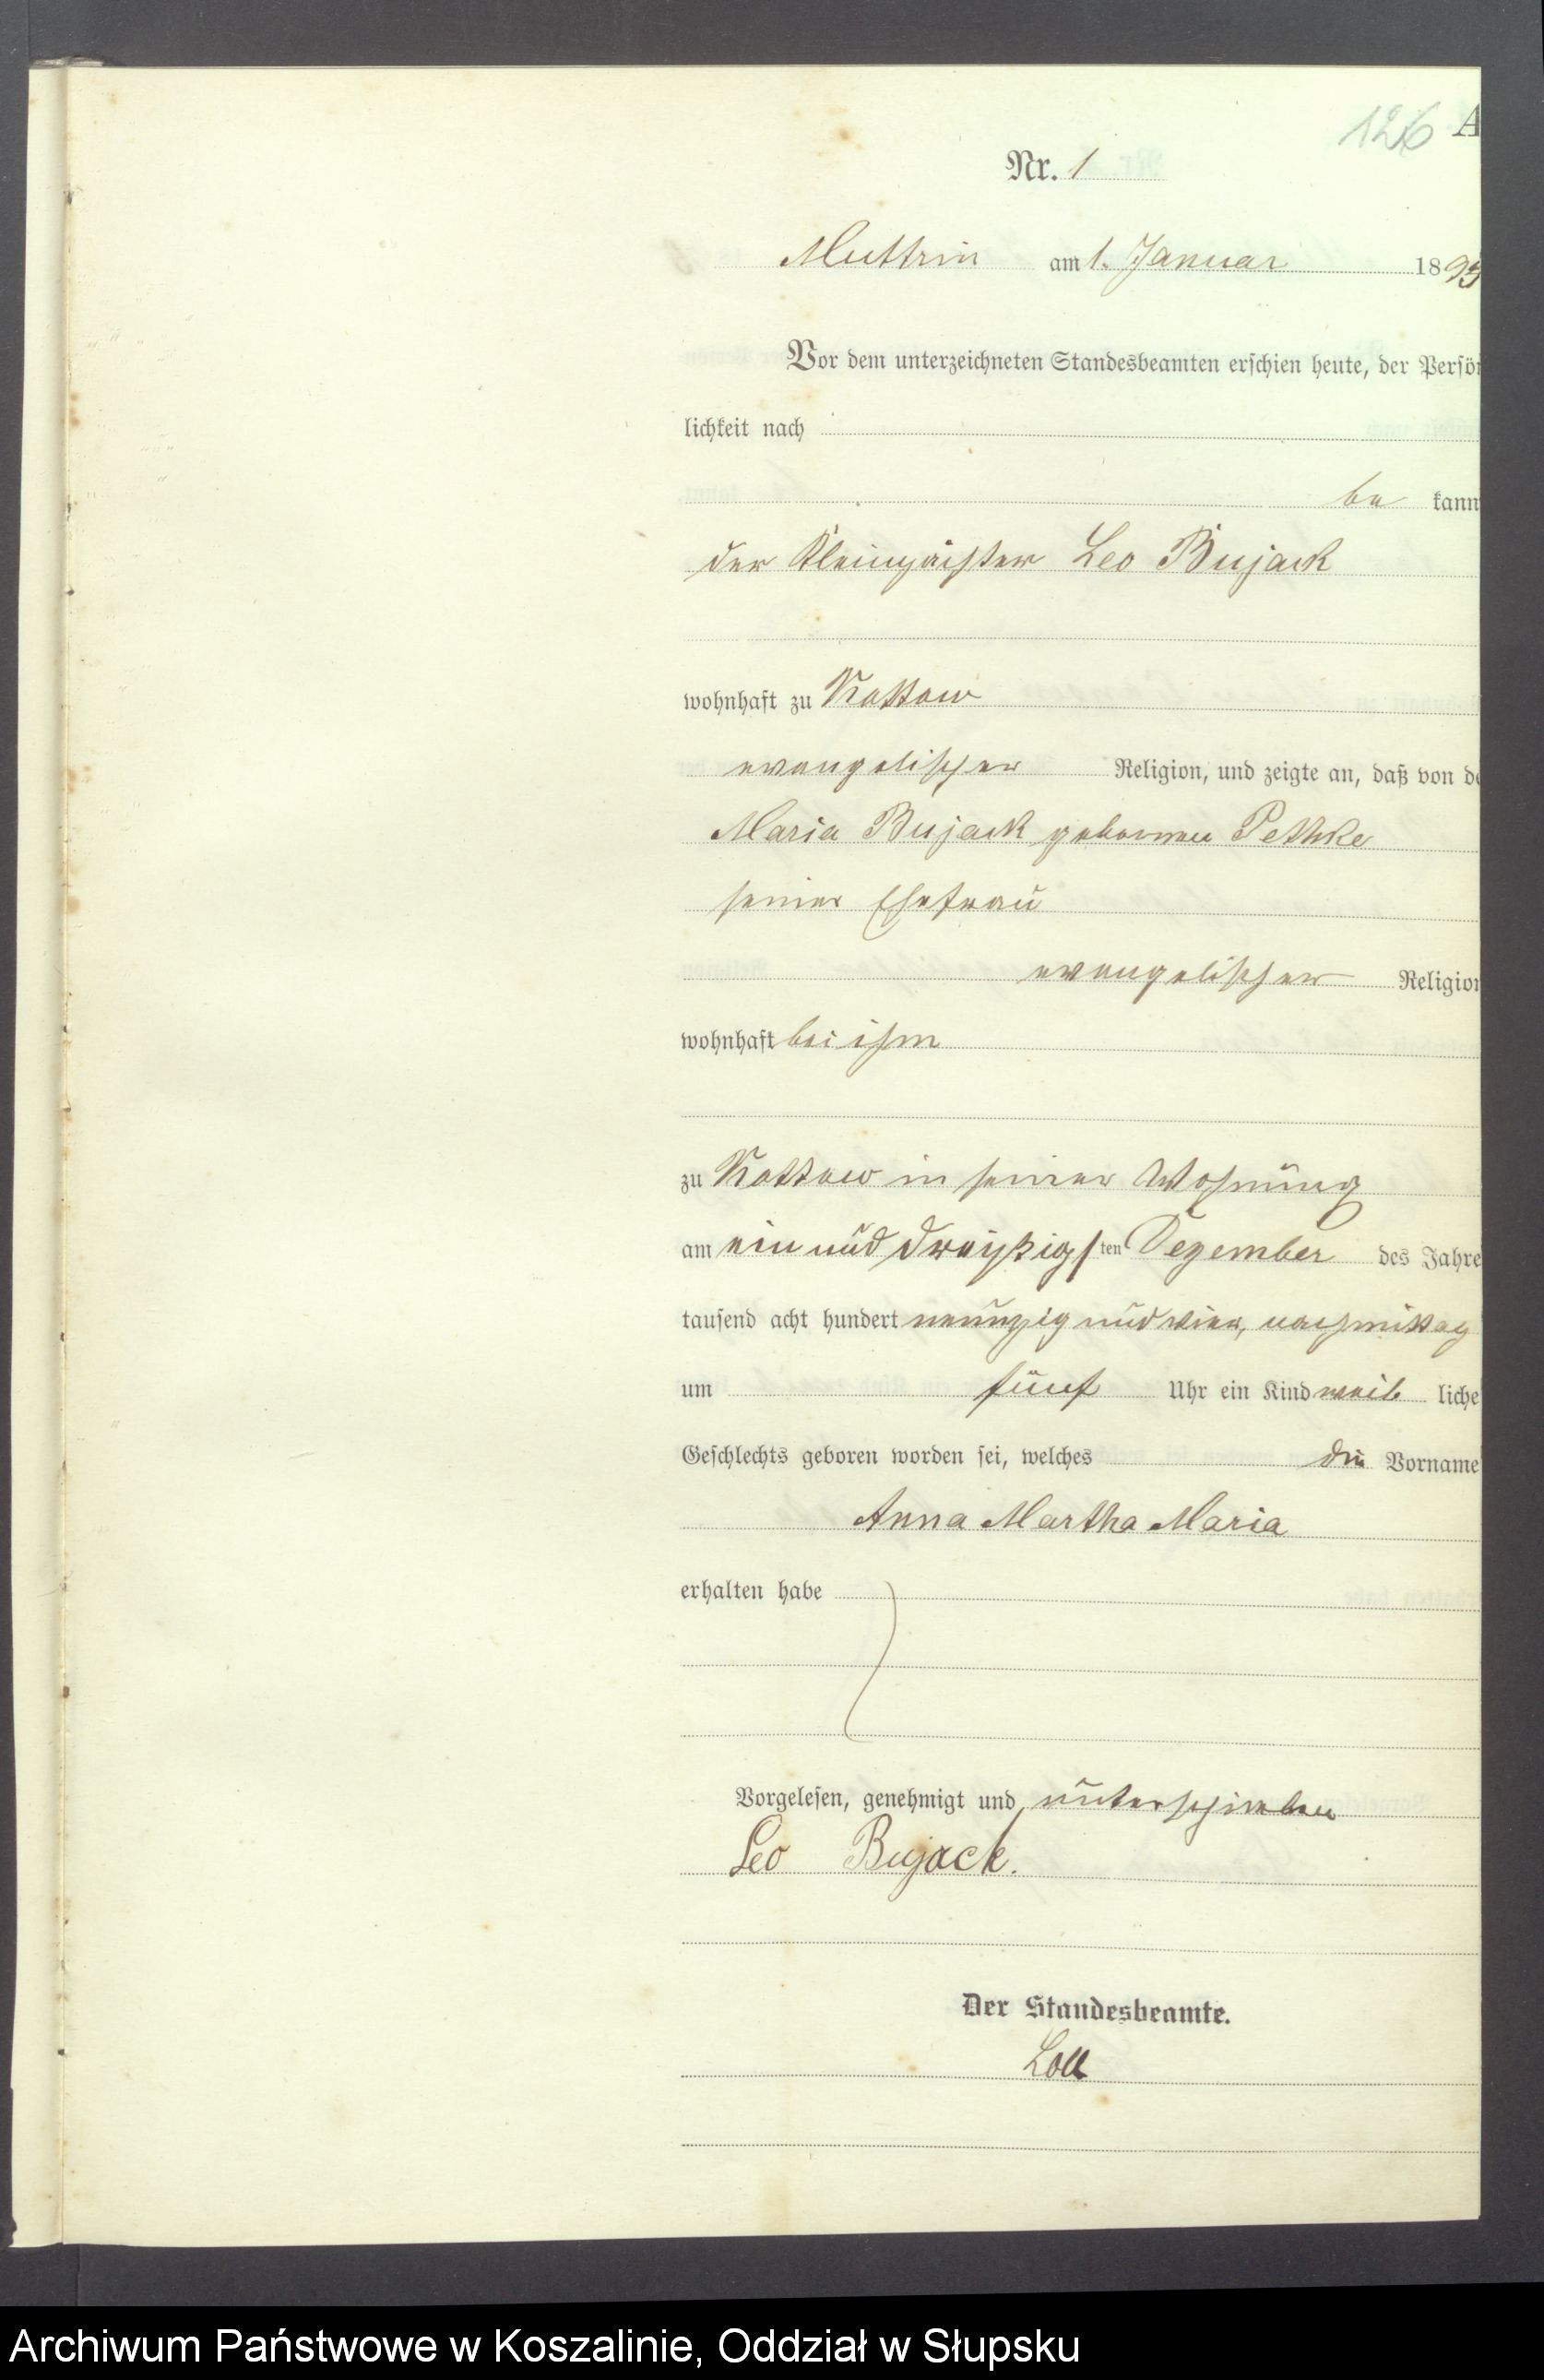 126 A
Nr. 1
Muttrin am 1. Januar 1895
Vor dem unterzeichneten Standesbeamten erschien heute, der Persön
lichkeit nach
be kann
der Kleinpächter Leo Bujack
wohnhaft zu Kottow
evangelischer Religion, und zeigte an, daß von de
Maria Bujack gebornen Pethke
seiner Ehefrau
evangelischer Religion
wohnhaft bei ihm
zu Kottow in seiner Wohnung
am ein und dreißigsten Dezember des Jahre
tausend acht hundert neunzig und vier, nachmittag
um fünf Uhr ein Kind weib liche
Geschlechts geboren worden sei, welches die Vorname
Anna Martha Maria
erhalten habe
Vorgelesen, genehmigt und unterschrieben
Leo Bujack.
Der Standesbeamte.
Loll
Archiwum Państwowe w Koszalinie, Oddział w Słupsku